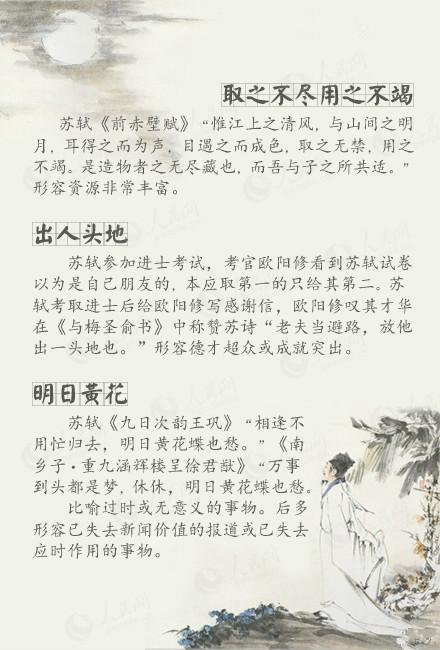 取之不尽用之不竭
苏轼《前赤壁赋》“惟江上之清风，与山间之明
月，耳得之而为声，目遇之而成色，取之无禁，用之
不竭。是造物者之无尽藏也，而吾与子之所共适。”
形容资源非常丰富。
出人头地
苏轼参加进士考试，考官欧阳修看到苏轼试卷
以为是自己朋友的，本应取第一的只给其第二。苏
轼考取进士后给欧阳修写感谢信，欧阳修叹其才华
在《与梅圣俞书》中称赞苏诗“老夫当避路，放他
出一头地也。”形容德才超众或成就突出。
明日黄花
苏轼《九日次韵王巩》“相逢不
用忙归去，明日黄花蝶也愁。”《南
乡子·重九涵辉楼呈徐君猷》“万事
到头都是梦，休休，明日黄花蝶也愁。
比喻过时或无意义的事物。后多
形容已失去新闻价值的报道或已失去
应时作用的事物。